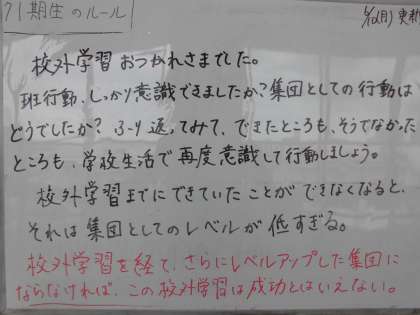 71期生のルール
5/12(月)更新
校外学習おつかれさまでした。
班行動、しっかり意識できましたか?集団としての行動は
どうでしたか? ふり返ってみて、できたところも、そうでなかった
ところも、学校生活で再度意識して行動しましょう。
校外学習までにできていたことができなくなると、
それは集団としてのレベルが低すぎる。
校外学習を経て、さらにレベルアップした集団に
ならなければ、この校外学習は成功とはいえない。